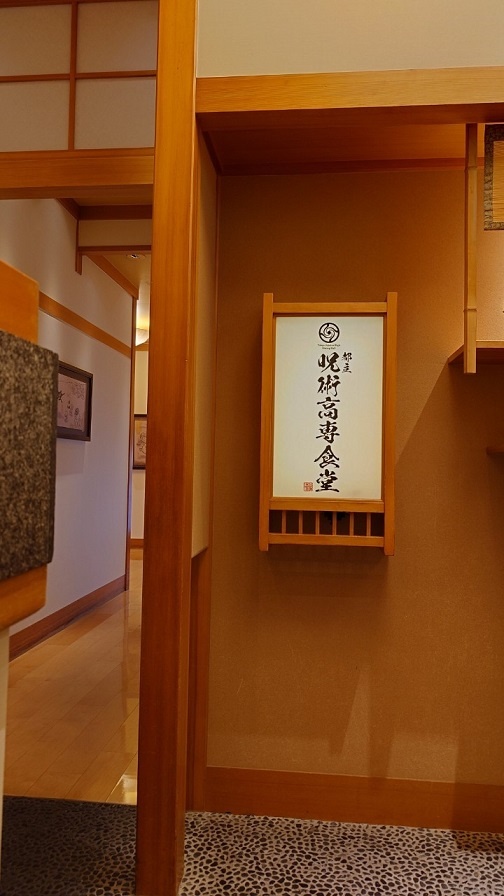 都立
呪術高専食堂